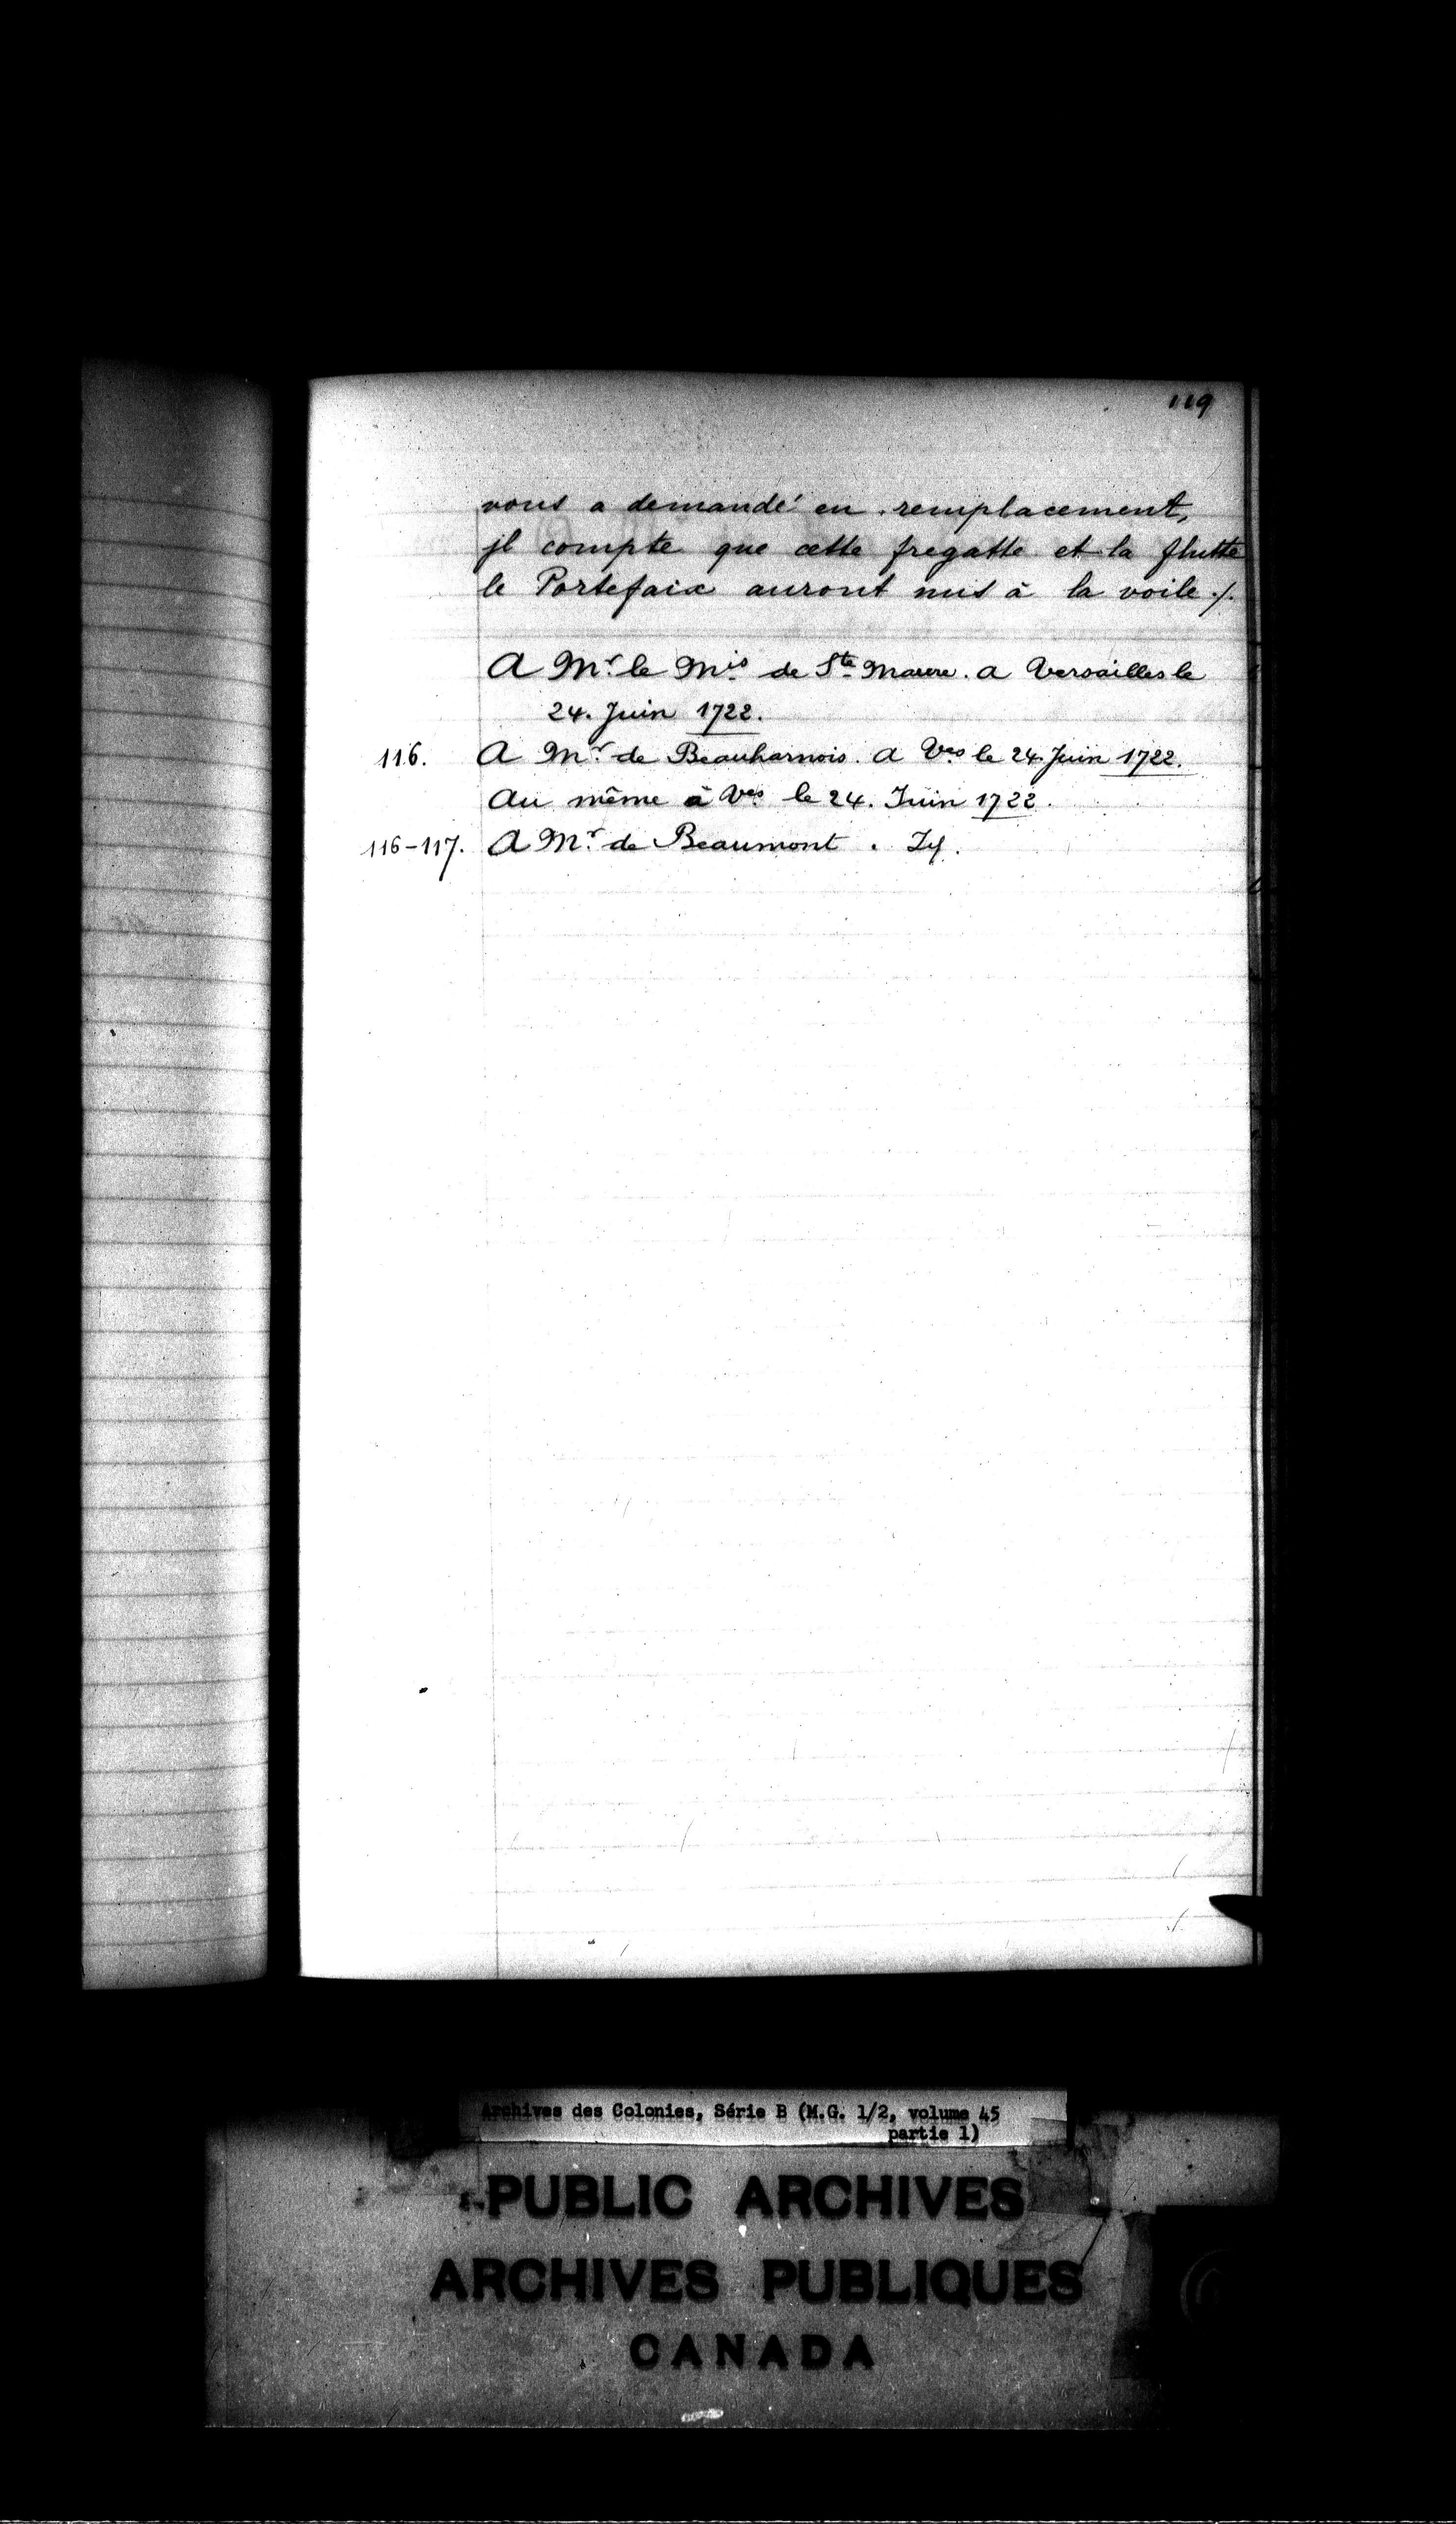 119
vous a demandé en remplacement,
jl compte que cette fregatte et la flutte
le Portefaix auront mis à la voile ./.
A Mr. le Mis de Ste Maure. a Versailles le
24. Juin 1722.
116. A Mr. de Beauharnois. a Ves le 24. Juin 1722.
Au même à Ves le 24. Juin 1722.
116-117. A Mr. de Beaumont.
Archives des Colonies, Série B (M.G. 1/2, volume 45
partie 1)
PUBLIC ARCHIVES
ARCHIVES PUBLIQUES
CANADA